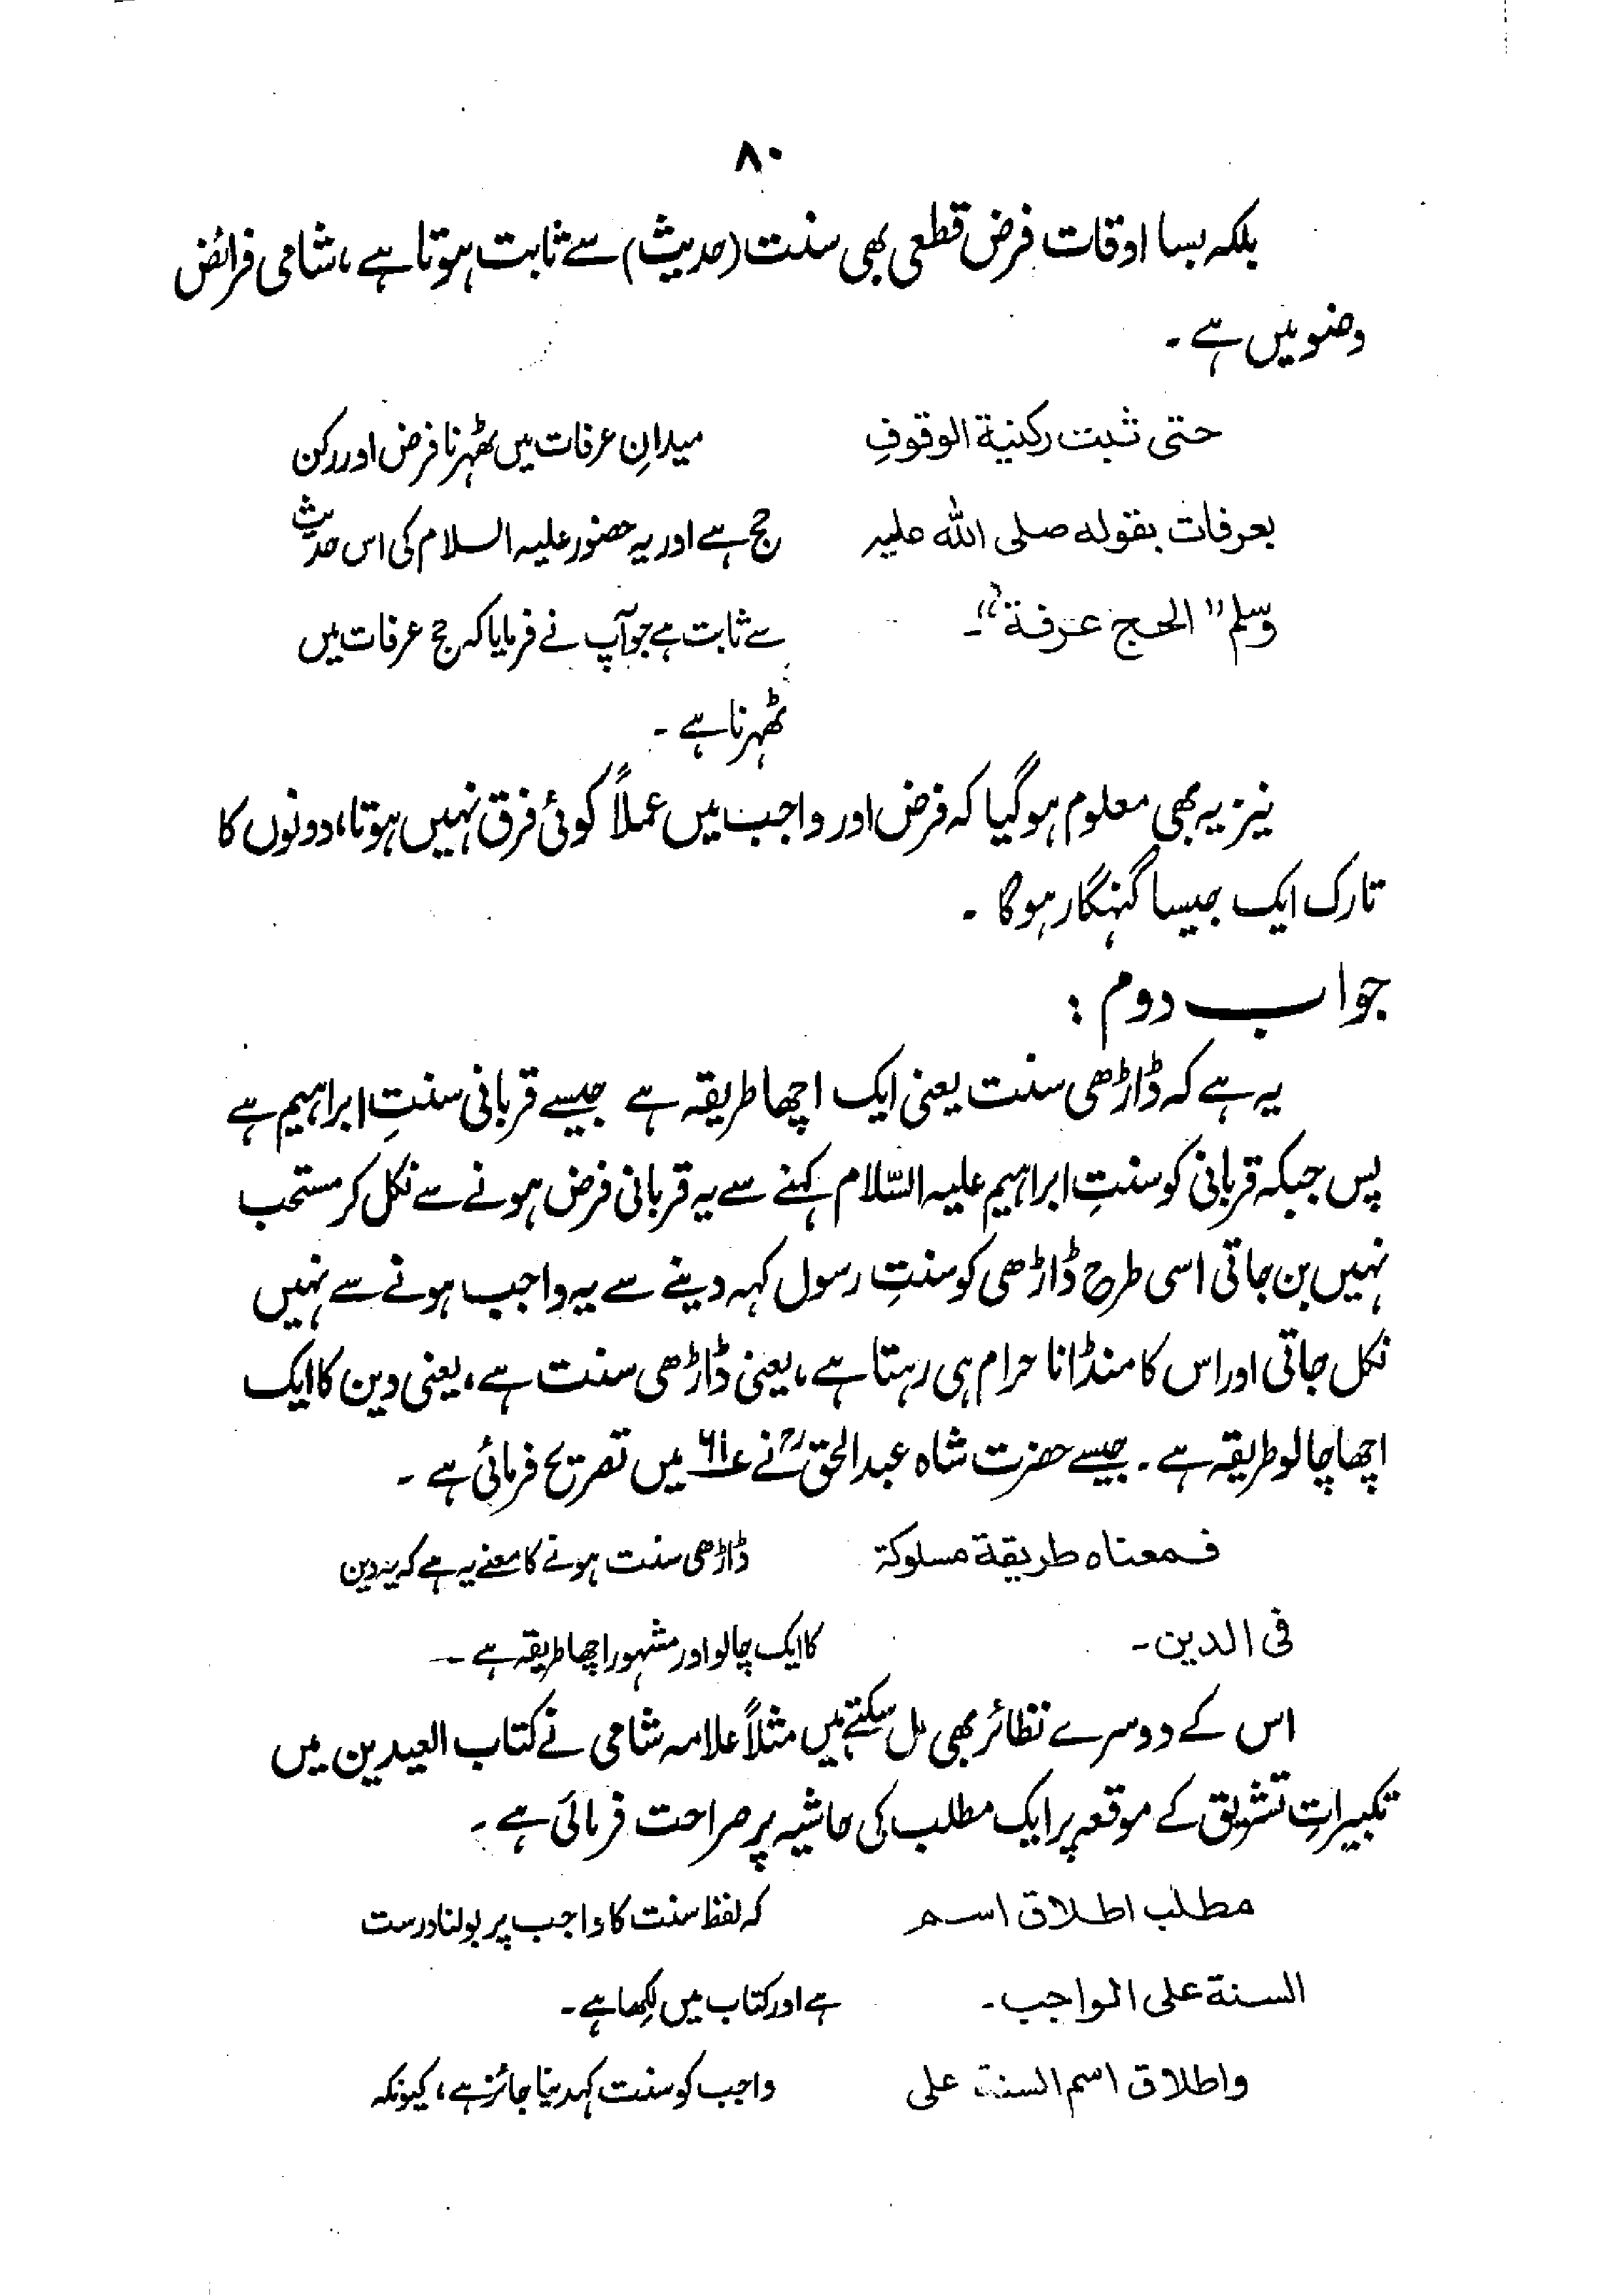 ۸۰
بلکہ بسا اوقات فرض قطعی بھی سنت (حدیث) سے ثابت ہوتا ہے، شامی فرائض
وضو میں ہے ۔
حتی ثبت رکنیة الوقوفِ
میدانِ عرفات میں ٹھہرنا فرض اور رکن
بعرفات بقوله صلی اللہ علیہ
حج ہے اور یہ حضور علیہ السلام کی اس حدیث
وسلم "الحج عرفة"۔
سے ثابت ہے جو آپ نے فرمایا کہ حج عرفات میں
ٹھہرنا ہے ۔
نیز یہ بھی معلوم ہو گیا کہ فرض اور واجب میں عملاً کوئی فرق نہیں ہوتا، دونوں کا
تارک ایک جیسا گنہگار ہو گا ۔
جواب دوم :
یہ ہے کہ ڈاڑھی سنت یعنی ایک اچھا طریقہ ہے جیسے قربانی سنتِ ابراہیم ہے
پس جبکہ قربانی کو سنتِ ابراہیم علیہ السّلام کہنے سے یہ قربانی فرض ہونے سے نکل کر مستحب
نہیں بن جاتی اسی طرح ڈاڑھی کو سنتِ رسول کہہ دینے سے یہ واجب ہونے سے نہیں
نکل جاتی اور اس کا منڈانا حرام ہی رہتا ہے، یعنی ڈاڑھی سنت ہے، یعنی دین کا ایک
اچھا چالو طریقہ ہے ۔ جیسے حضرت شاہ عبدالحقؒ نے میں تصریح فرمائی ہے ۔
فمعناه طریقة مسلوکة
ڈاڑھی سنت ہونے کا معنے یہ ہے کہ یہ دین
فی الدین ۔
کا ایک چالو اور مشہور اچھا طریقہ ہے ۔
اس کے دوسرے نظائر بھی مل سکتے ہیں مثلاً علامہ شامی نے کتاب العیدین میں
تکبیراتِ تشریق کے موقعہ پر ایک مطلب کی حاشیہ پر صراحت فرمائی ہے ۔
مطلب اطلاق اسم
کہ لفظ سنت کا واجب پر بولنا درست
السنة علی الواجب ۔
ہے اور کتاب میں لکھا ہے ۔
واطلاق اسم السنة علی
واجب کو سنت کہدینا جائز ہے، کیونکہ